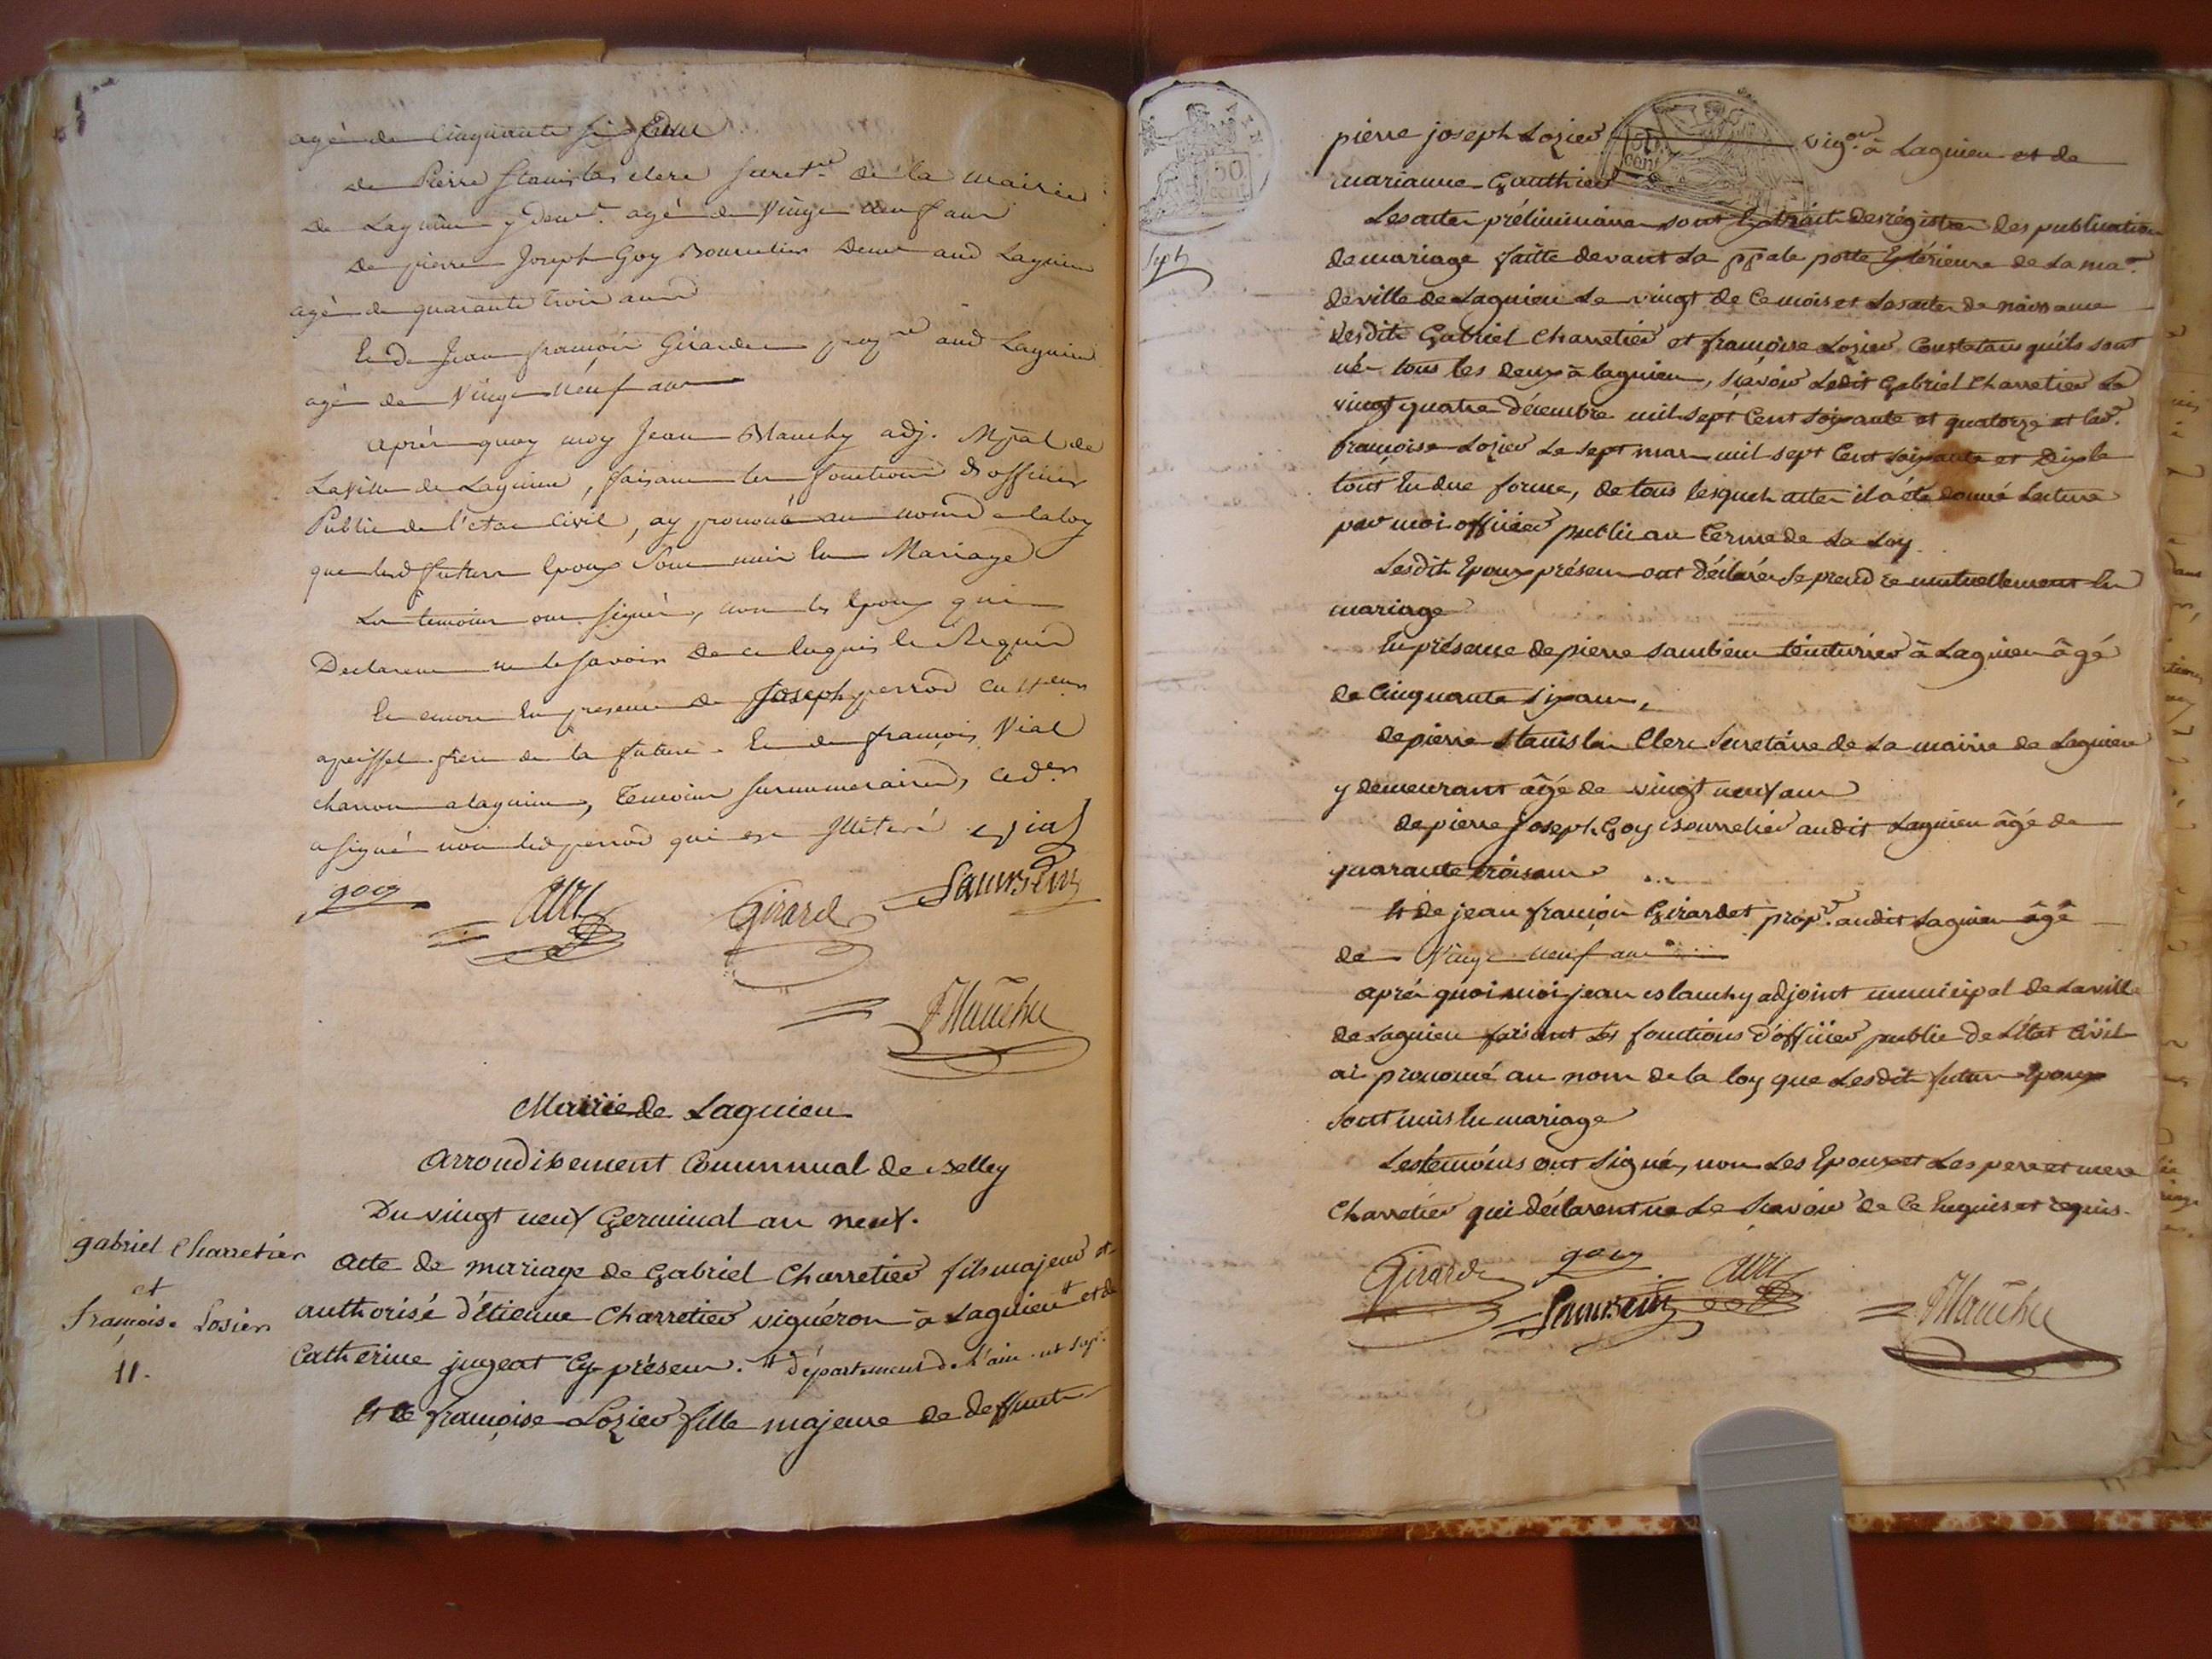 agé de Cinquante six ans
de Pierre Stanislas clerc Secret.re de la mairie
de Lagnieu y Demt. agé de Vingt neuf ans
de pierre Joseph Goy Bourrelier Demt aud Lagnieu
agé de quarante trois ans
Et de Jean françois Girardet prop.re aud Lagnieu
agé de Vingt neuf ans
après quoy moy Jean Blanchy adj. Mpal de
La Ville de Lagnieu, faisant les fonctions d'officier
Public de l'etat Civil, ay prononcé au nom de la loy
que lesd futurs Epoux Sont unis En Mariage
Les temoins ont signé, non les Epoux qui
Declarent ne le savoir de ce Enquis et Requis
Et encore En presence de Joseph perrod
frere de la future. Et de françois Vial
charron a lagnieu, Temoins surnumeraires, ce der
a signé non led perrod qui est Illiteré Vial
goy Clerc Girardet Saunbein
Blanchy
Mairie de Lagnieu
Arrondissement Communnal de Belley
Du vingt neuf Germinal an neuf.
gabriel Charretier
et
françoise Losier
11.
Acte de mariage de Gabriel Charretier fils majeur et
authorisé d'Etienne Charretier vigneron à Lagnieu # et de
Catherine jugeat Cy présens. # département de l'ain ut sup.
Et de françoise Lozier fille majeure de deffunt
50 cent
Sept
pierre joseph Lozier vig.on à Lagnieu et de
marianne Gauthier
Les actes préliminaires sont Extrait des régistres des publication
de mariage faitte devant La ppale porte Extérieure de La mai.
de ville de Lagnieu Le vingt de Ce mois et Les actes de naissance
desdits Gabriel Charretier et françoise Lozier Constatans qu'ils sont
nés tous les deux à lagnieu, sçavoir Ledit Gabriel Charretier Le
vingt quatre décembre mil sept Cent soixante et quatorze et lad.
françoise Lozier Le sept mars mil sept Cent soixante et Dix le
tout En due forme, de tous lesquels actes il a été donné Lecture
par moi officier public au terme de La Loy.
Lesdits Epoux présens ont déclaré se prendre mutuellement En
mariage
En présence de pierre saunbein teinturier à Lagnieu âgé
de Cinquante six ans,
de pierre Stanislas Clerc Secretaire de La mairie de Lagnieu
y demeurant âgé de vingt neuf ans
de pierre joseph Goy Bourrelier audit Lagnieu âgé de
quarante trois ans
Et de jean françois Girardet prop.re audit Lagnieu âgé
de Vingt neuf ans
après quoi moi jean Blanchy adjoint municipal de La ville
de Lagnieu faisant Les fonctions d'officier public de L'état Civil
ai prononcé au nom de la loy que Lesdits futurs Epoux
sont unis En mariage
Les temoins ont signé, non Les Epoux et Les pere et mere
Charretier qui déclarent ne Le sçavoir de Ce Enquis et requis.
Girardet goy Clerc
Saunbein Blanchy